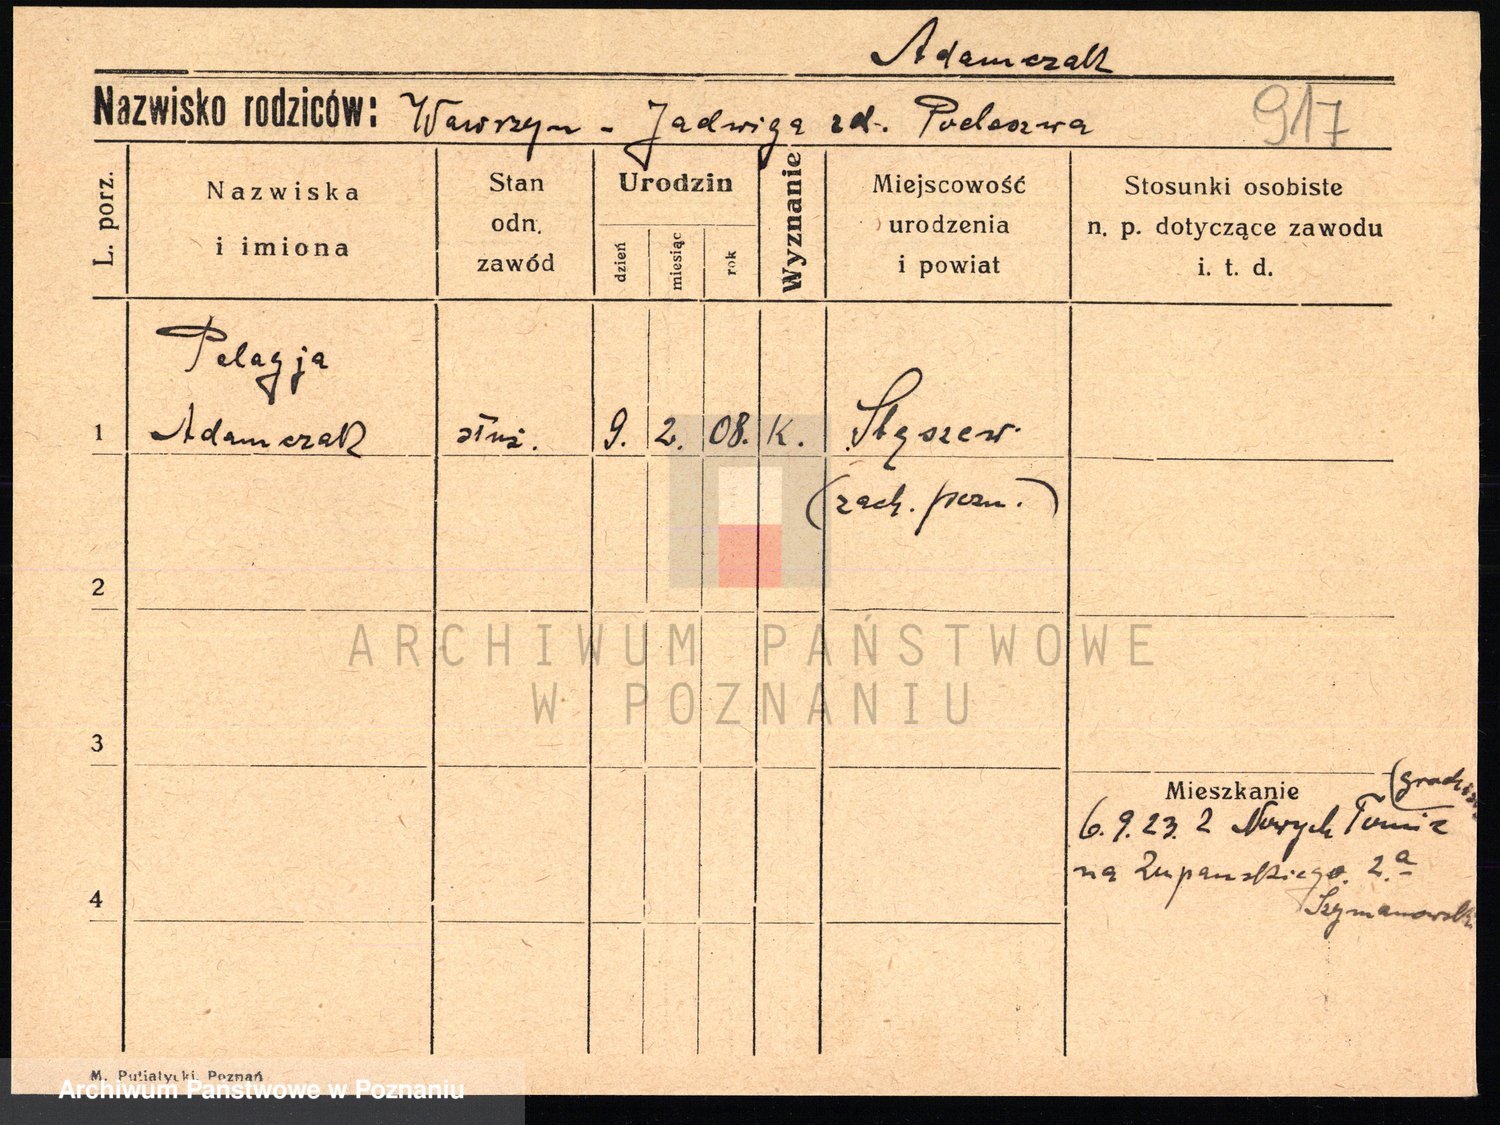 Adamczak
Nazwisko rodziców: Wawrzyn - Jadwiga zd. Podeszwa
917
L. porz.
Nazwiska
i imiona
Stan
odn.
zawód
Urodzin
dzień
miesiąc
rok
Wyznanie
Miejscowość
urodzenia
i powiat
Stosunki osobiste
n. p. dotyczące zawodu
i. t. d.
Pelagja
1 Adamczak służ. 9. 2. 08. K. Stęszew
(zach. pozn.)
2
ARCHIWUM PAŃSTWOWE
W POZNANIU
3
Mieszkanie
6.9.23. z Nowych Tomic
na Żupańskiego. 2.a
4
Szymanowski
M. Putiatycki, Poznań
Archiwum Państwowe w Poznaniu